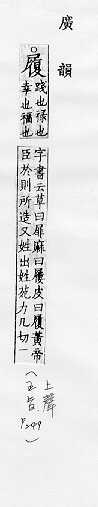 廣韻
履
踐也祿也
幸也福也
字書云草曰屝麻曰屨皮曰履黃帝
臣於則所造又姓出姓苑力几切一
(上聲
五旨
P249)